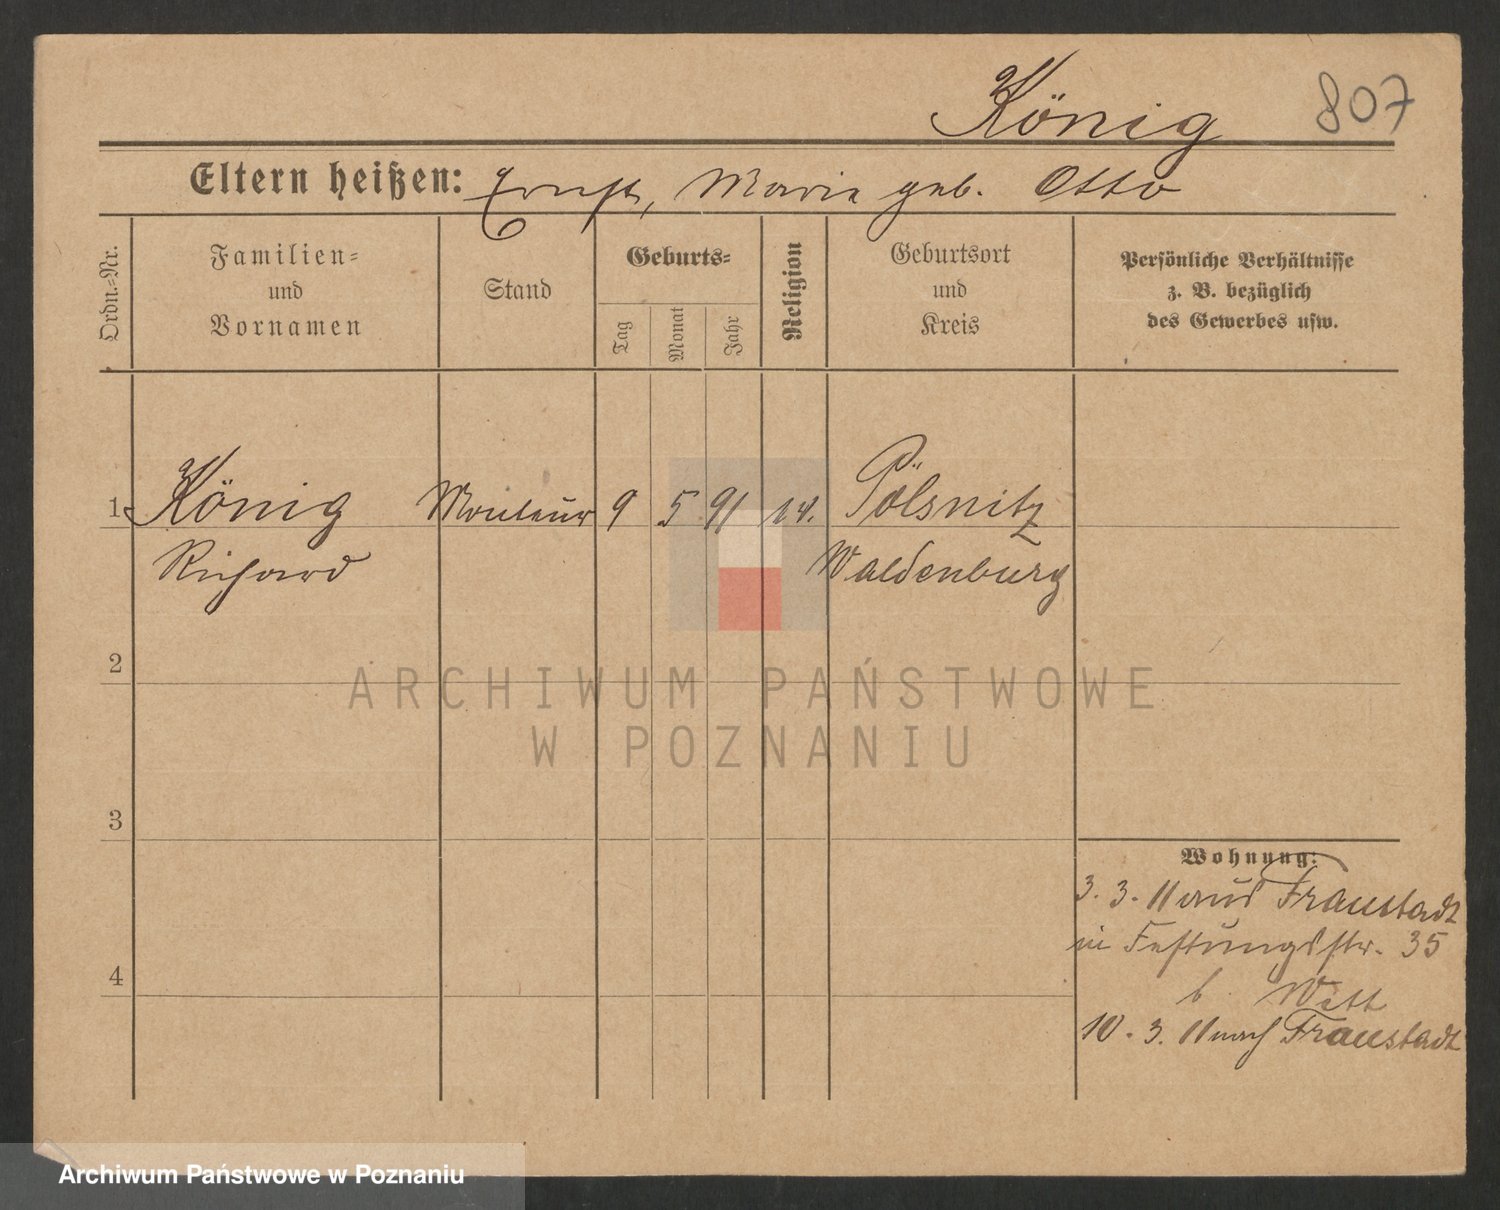 König 807
Eltern heißen: Ernst, Marie geb. Otto
Ordn.-Nr.
Familien=
und
Vornamen
Stand
Geburts=
Tag
Monat
Jahr
Religion
Geburtsort
und
Kreis
Persönliche Verhältnisse
z. B. bezüglich
des Gewerbes usw.
1 König Monteur 9 5 91 Pölsnitz
Richard Waldenburg
2
ARCHIWUM PAŃSTWOWE
W POZNANIU
3
Wohnung:
3. 3. 11 aus Fraustadt
in Festungsstr. 35
b. Witt
4
10. 3. 11 nach Fraustadt
Archiwum Państwowe w Poznaniu